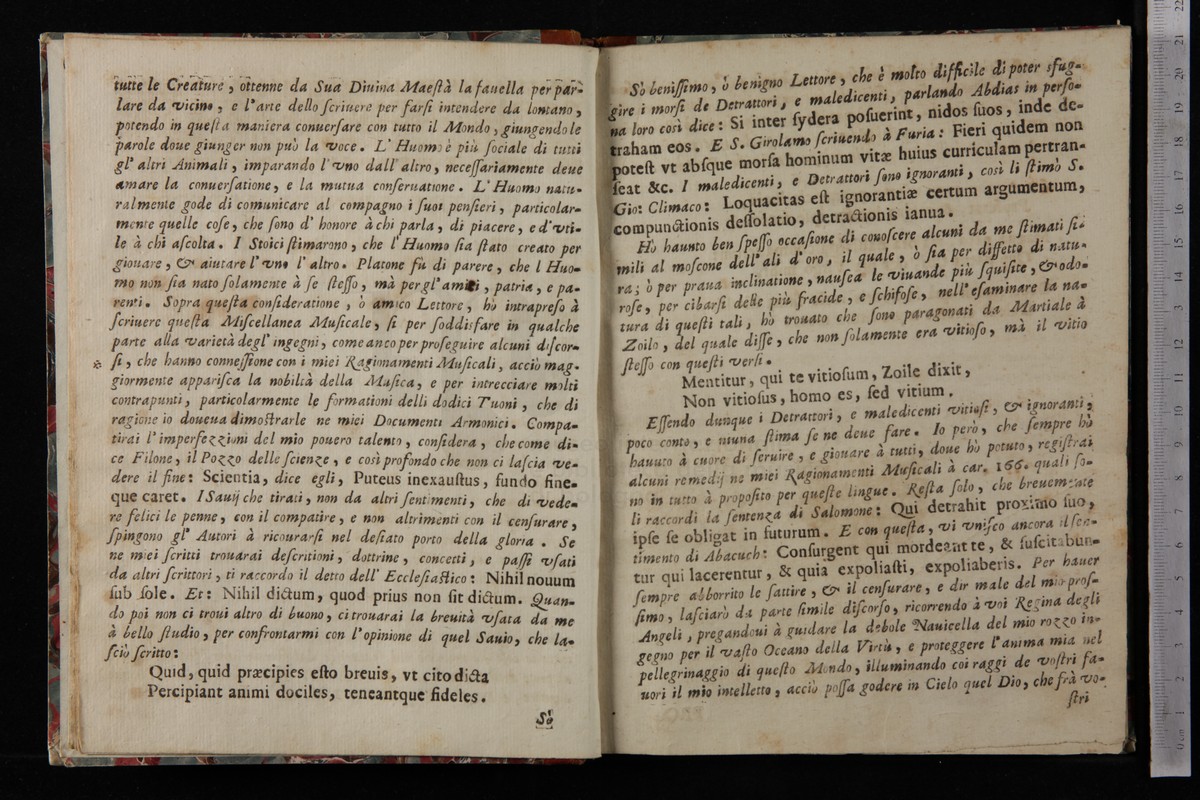 tutte le Creature, ottenne da Sua Diuina Maeſtà la fauella per par-
lare da vicino, e l'arte dello ſcriuere per farſi intendere da lontano,
potendo in queſta maniera conuerſare con tutto il Mondo, giungendo le
parole doue giunger non può la voce. L'Huomo è più ſociale di tutti
gl'altri Animali, imparando l'vno dall'altro, neceſſariamente deue
amare la conuerſatione, e la mutua conſeruatione. L'Huomo natu-
ralmente gode di comunicare al compagno i ſuoi penſieri, particolar-
mente quelle coſe, che ſono d'honore à chi parla, di piacere, e d'vti-
le à chi aſcolta. I Stoici ſtimarono, che l'Huomo ſia ſtato creato per
giouare, & aiutare l'vno l'altro. Platone fù di parere, che l Huo-
mo non ſia nato ſolamente à ſe ſteſſo, mà per gl'amici, patria, e pa-
renti. Sopra queſta conſideratione, ò amico Lettore, hò intrapreſo à
ſcriuere queſta Miſcellanea Muſicale, ſi per ſoddisfare in qualche
parte alla varietà degl'ingegni, come anco per proſeguire alcuni diſcor-
ſi, che hanno conneſſione con i miei Ragionamenti Muſicali, acciò mag-
giormente appariſca la nobiltà della Muſica, e per intrecciare molti
contrapunti, particolarmente le formationi delli dodici Tuoni, che di
ragione io doueua dimoſtrarle ne miei Documenti Armonici. Compa-
tirai l'imperfezzioni del mio pouero talento, conſidera, che come di-
ce Filone, il Pozzo delle ſcienze, e così profondo che non ci laſcia ve-
dere il fine: Scientia, dice egli, Puteus inexauſtus, fundo fine-
que caret. I Sauij che tirati, non da altri ſentimenti, che di vede-
re felici le penne, con il compatire, e non altrimenti con il cenſurare,
ſpingono gl'Autori à ricourarſi nel deſiato porto della gloria. Se
ne miei ſcritti trouarai deſcritioni, dottrine, concetti, e paſſi vſati
da altri ſcrittori, ti raccordo il detto dell'Eccleſiaſtico: Nihil nouum
ſub ſole. Et: Nihil dictum, quod prius non ſit dictum. Quan-
do poi non ci troui altro di buono, ci trouarai la breuità vſata da me
à bello ſtudio, per confrontarmi con l'opinione di quel Sauio, che la-
ſciò ſcritto:
Quid, quid præcipies eſto breuis, vt cito dicta
Percipiant animi dociles, teneantque fideles.
Sò
Sò beniſſimo, ò benigno Lettore, che è molto difficile di poter sfug-
gire i morſi de Detrattori, e maledicenti, parlando Abdias in perſo-
na loro così dice: Si inter ſydera poſuerint, nidos ſuos, inde de-
traham eos. E S. Girolamo ſcriuendo à Furia: Fieri quidem non
poteſt vt abſque morſa hominum vitæ huius curriculam pertran-
ſeat &c. I maledicenti, e Detrattori ſono ignoranti, così li ſtimò S.
Gio: Climaco: Loquacitas eſt ignorantiæ certum argumentum,
compunctionis deſſolatio, detractionis ianua.
Hò hauuto ben ſpeſſo occaſione di conoſcere alcuni da me ſtimati ſi-
mili al moſcone dell'ali d'oro, il quale, ò ſia per diffetto di natu-
ra; ò per praua inclinatione, nauſea le viuande più ſquiſite, & odo-
roſe, per cibarſi delle più fracide, e ſchifoſe, nell'eſaminare la na-
tura di queſti tali, hò trouato che ſono paragonati da Martiale à
Zoilo, del quale diſſe, che non ſolamente era vitioſo, mà il vitio
ſteſſo con queſti verſi.
Mentitur, qui te vitioſum, Zoile dixit,
Non vitioſus, homo es, ſed vitium.
Eſſendo dunque i Detrattori, e maledicenti vitioſi, & ignoranti,
poco conto, e niuna ſtima ſe ne deue fare. Io però, che ſempre hò
hauuto à cuore di ſeruire, e giouare à tutti, doue hò potuto, regiſtrai
alcuni remedij ne miei Ragionamenti Muſicali à car. 166. quali ſo-
no in tutto à propoſito per queſte lingue. Reſta ſolo, che breuemente
li raccordi la ſentenza di Salomone: Qui detrahit proximo ſuo,
ipſe ſe obligat in futurum. E con queſta, vi vniſco ancora il ſen-
timento di Abacuch: Conſurgent qui mordeant te, & ſuſcitabun-
tur qui lacerentur, & quia expoliaſti, expoliaberis. Per hauer
ſempre abborrito le ſattire, & il cenſurare, e dir male del mio proſ-
ſimo, laſciarò da parte ſimile diſcorſo, ricorrendo à voi Regina degli
Angeli, pregandoui à guidare la debole Nauicella del mio rozzo in-
gegno per il vaſto Oceano della Virtù, e proteggere l'anima mia nel
pellegrinaggio di queſto Mondo, illuminando coi raggi de voſtri fa-
uori il mio intelletto, acciò poſſa godere in Cielo quel Dio, che frà vo-
ſtri